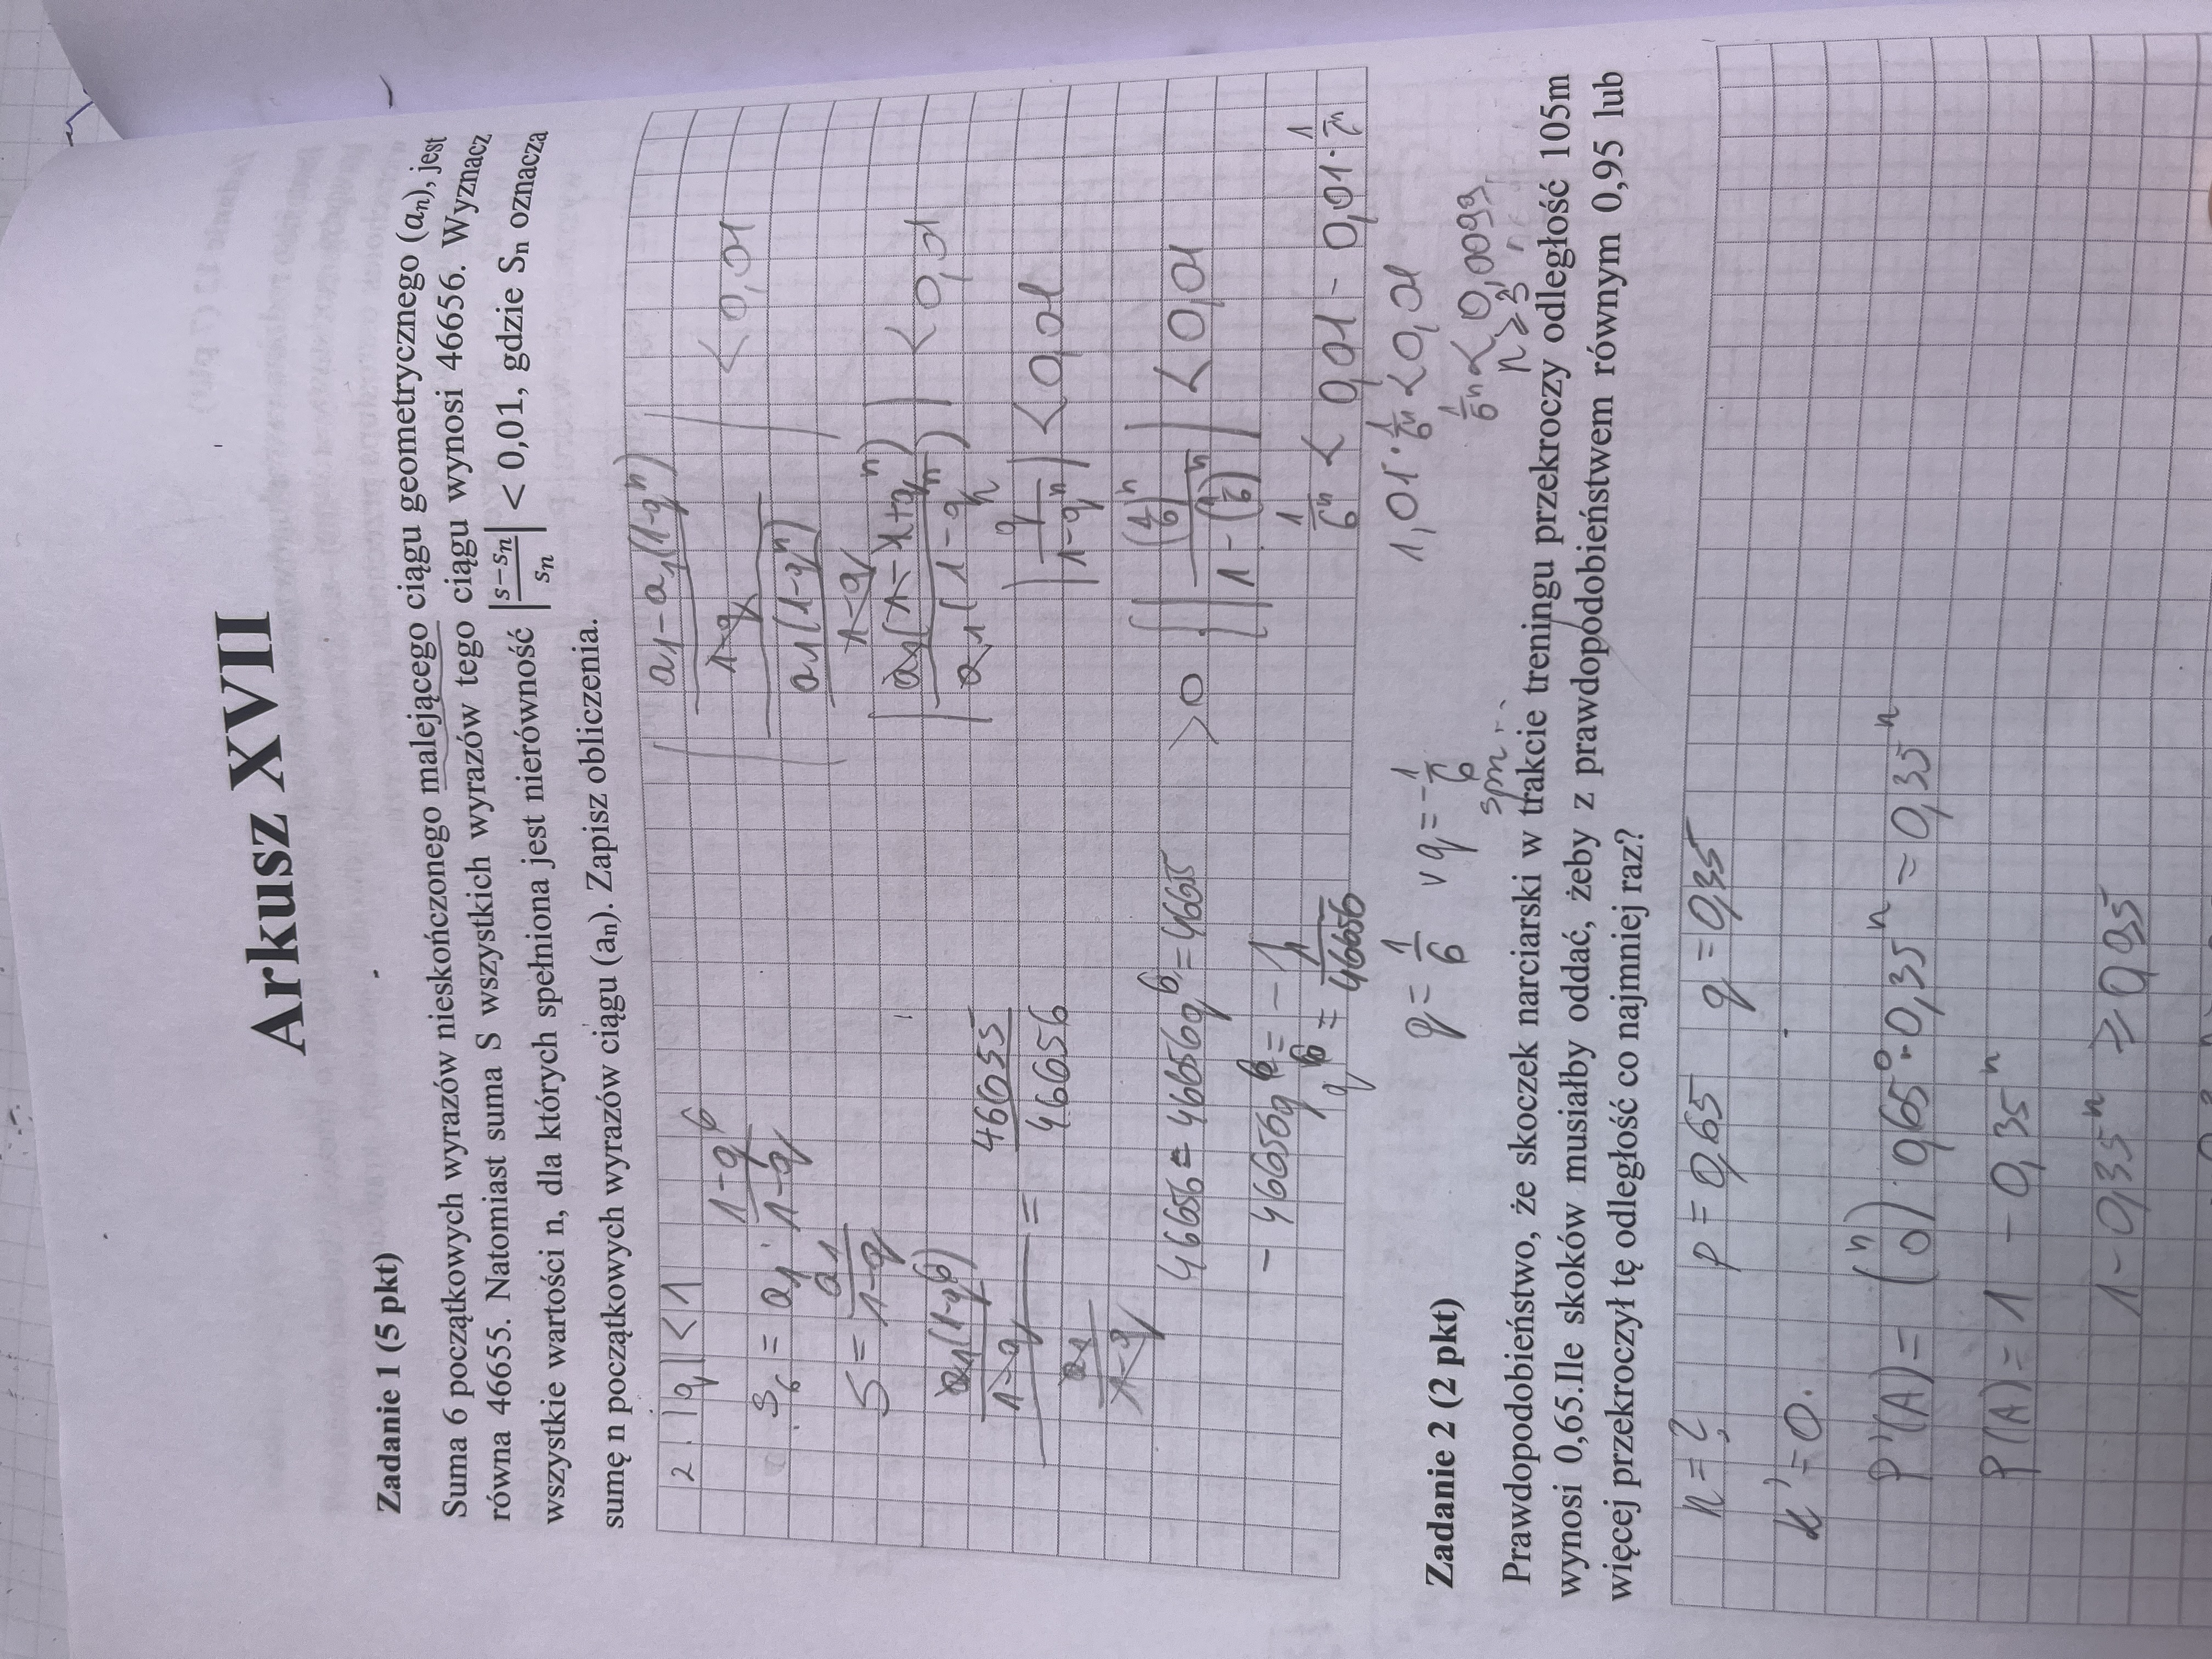 Arkusz XVII
Zadanie 1 (5 pkt)
Suma 6 początkowych wyrazów nieskończonego malejącego ciągu geometrycznego (aₙ), jest
równa 46655. Natomiast suma S wszystkich wyrazów tego ciągu wynosi 46656. Wyznacz
wszystkie wartości n, dla których spełniona jest nierówność |(s−sₙ)/sₙ| < 0,01, gdzie Sₙ oznacza
sumę n początkowych wyrazów ciągu (aₙ). Zapisz obliczenia.
2. |q| < 1
S₆ = a1 · (1−q⁶)/(1−q)
S = a1/(1−q)
(a1(1−q⁶)/(1−q))/(a1/(1−q)) = 46655/46656
46656 − 46656q⁶ = 46655
− 46656q⁶ = −1
q⁶ = 1/46656
q = 1/6 ∨ q = −1/6
spm...
|(a1−a1(1−qⁿ))/(1−q)| < 0,01
a1(1−qⁿ)/(1−q)
|a1(1−1+qⁿ)/a1(1−qⁿ)| < 0,01
|qⁿ/(1−qⁿ)| < 0,01
>0 |(1/6)ⁿ/(1−(1/6)ⁿ)| < 0,01
1/6ⁿ < 0,01 − 0,01 · 1/6ⁿ
1,01 · 1/6ⁿ < 0,01
1/6ⁿ < 0,0099
n ≥ 3
Zadanie 2 (2 pkt)
Prawdopodobieństwo, że skoczek narciarski w trakcie treningu przekroczy odległość 105m
wynosi 0,65.Ile skoków musiałby oddać, żeby z prawdopodobieństwem równym 0,95 lub
więcej przekroczył tę odległość co najmniej raz?
n = ? p = 0,65 q = 0,35
k' = 0.
P'(A) = (n 0) 0,65⁰ · 0,35ⁿ = 0,35ⁿ
P(A) = 1 − 0,35ⁿ
1 − 0,35ⁿ ≥ 0,95